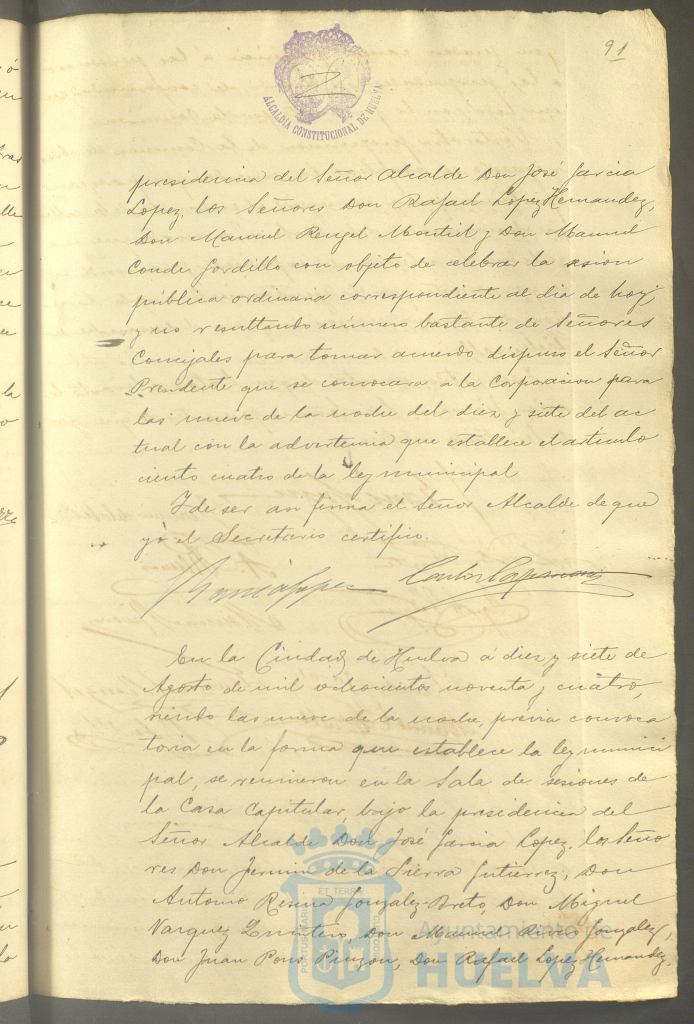 91
ALCALDÍA CONSTITUCIONAL DE HUELVA
presidencia del Señor Alcalde Don José Garcia
Lopez, los Señores Don Rafael Lopez Hernandez,
Don Manuel Rengel Montiel y Don Manuel
Conde Gordillo con objeto de celebrar la sesion
pública ordinaria correspondiente al dia de hoy;
y no resultando número bastante de Señores
Concejales para tomar acuerdo dispuso el Señor
Presidente que se convocara a la Corporacion para
las nueve de la noche del diez y siete del ac
tual con la advertencia que establece el artículo
ciento cuatro de la ley municipal
Y de ser asi firma el Señor Alcalde de que
yó el Secretario certifico.
En la Ciudad de Huelva á diez y siete de
Agosto de mil ochocientos noventa y cuatro,
siendo las nueve de la noche, previa convoca
toria en la forma que establece la ley munici
pal, se reunieron en la Sala de sesiones de
la Casa Capitular, bajo la presidencia del
Señor Alcalde Don José Garcia Lopez, los Seño
res Don Fermin de la Sierra Gutierrez, Don
Antonio Resina Gonzalez-Breto, Don Miguel
Vazquez Don Manuel Gonzalez,
Don Juan Pinzon, Don Rafael Lopez Hernandez,
Ayuntamiento de
HUELVA